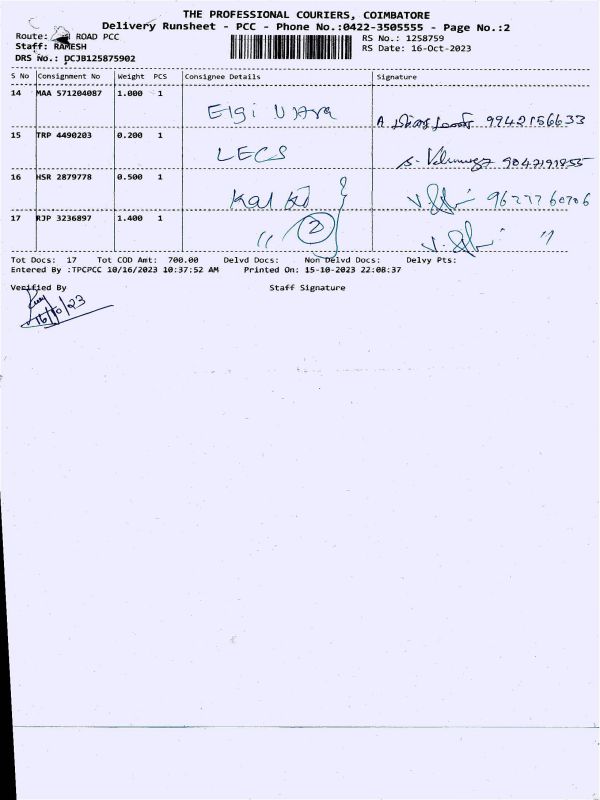 THE PROFESSIONAL COURIERS, COIMBATORE
Delivery Runsheet - PCC - Phone No.:0422-3505555 - Page No.:2
Route: ROAD PCC
RS No.: 1258759
Staff: RAMESH
RS Date: 16-Oct-2023
DRS No.: DCJB125875902
S No Consignment No Weight PCS Consignee Details Signature
14 MAA 571204087 1.000 1 Elgi 9942156633
15 TRP 4490203 0.200 1 LECS 9042191855
16 HSR 2879778 0.500 1 9627760706
17 RJP 3236897 1.400 1 " 2 "
Tot Docs: 17 Tot COD Amt: 700.00 Delvd Docs: Non Delvd Docs: Delvy Pts:
Entered By :TPCPCC 10/16/2023 10:37:52 AM Printed On: 15-10-2023 22:08:37
Verified By Staff Signature
16/10/23